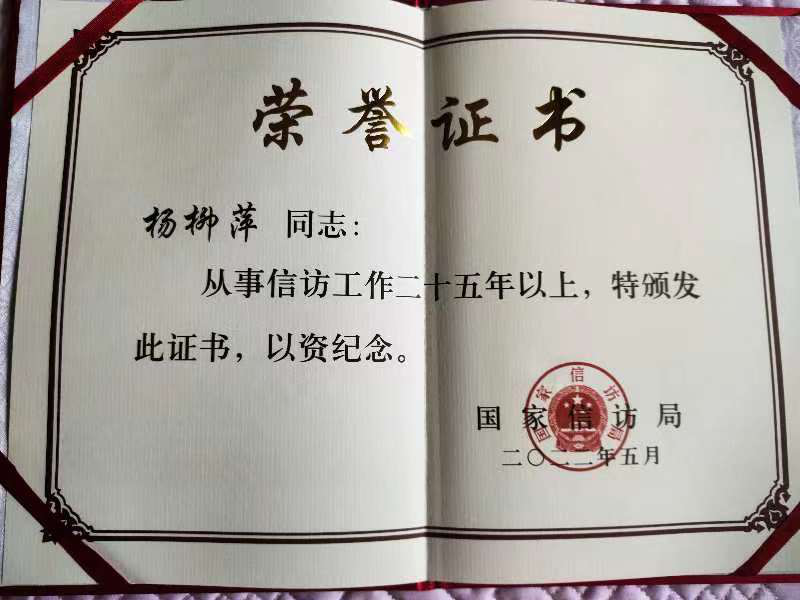 荣誉证书
杨柳萍 同志：
从事信访工作二十五年以上，特颁发
此证书，以资纪念。
国家信访局
二〇二二年五月
国家信访局